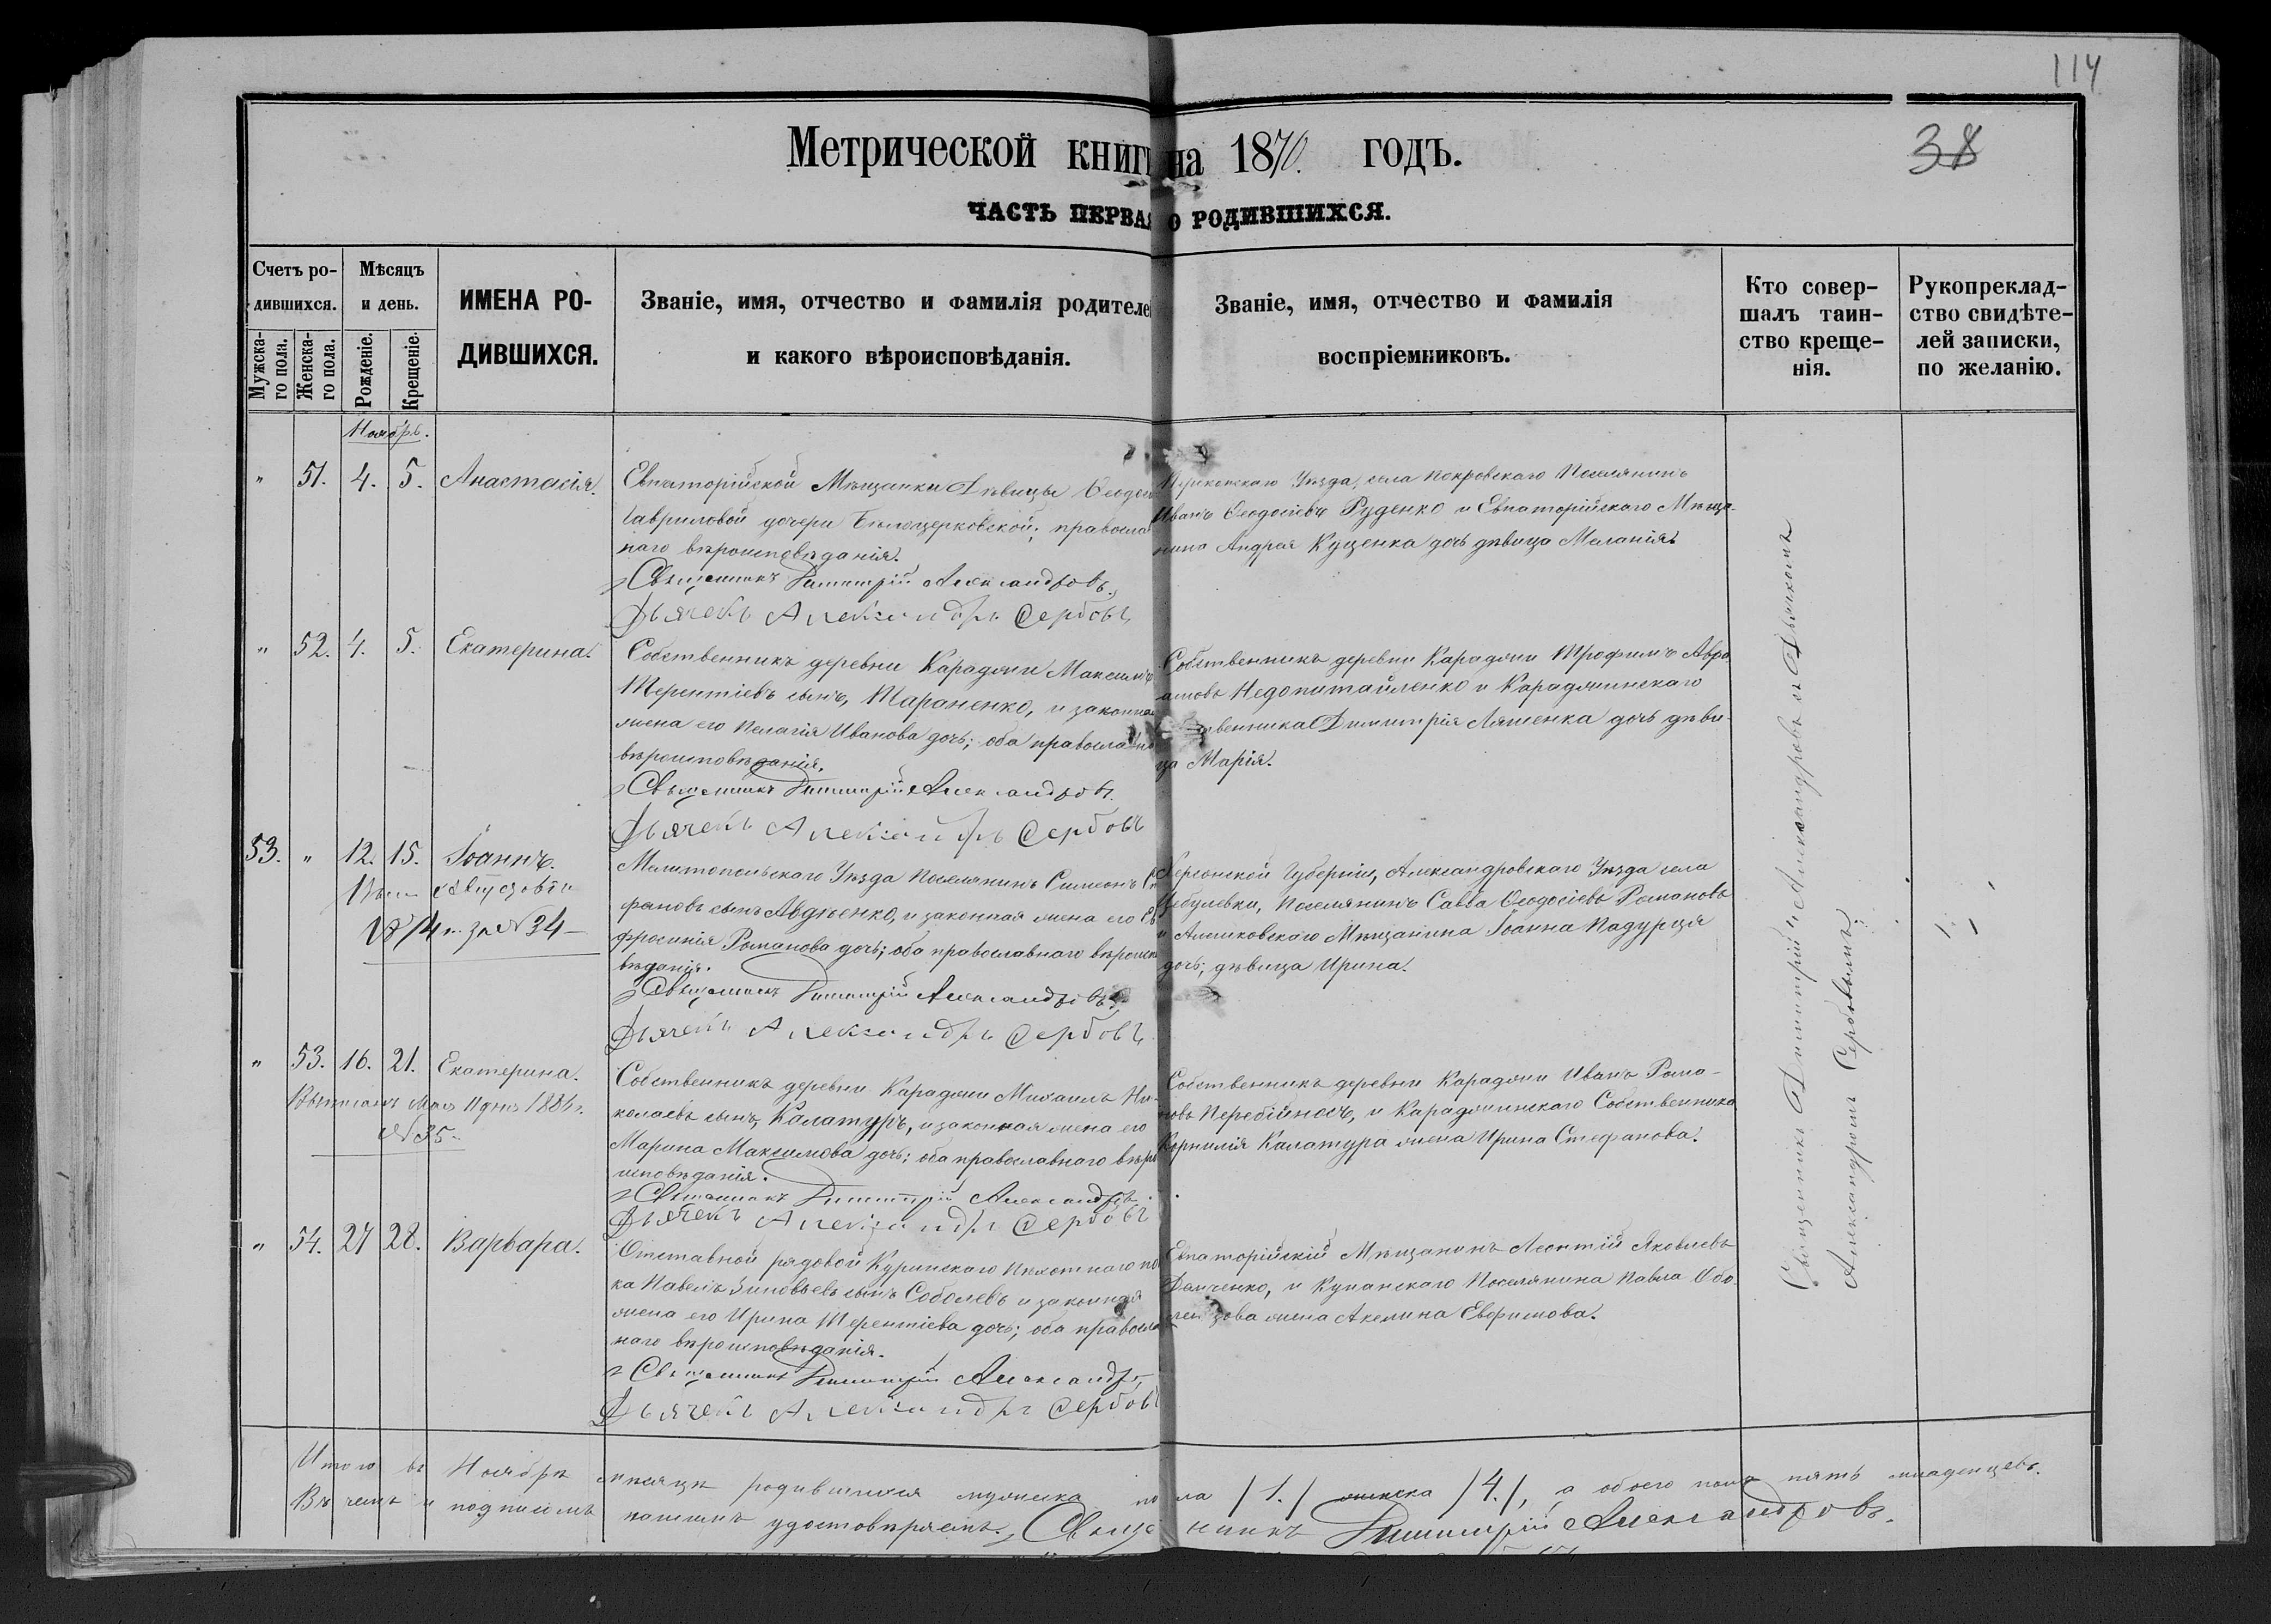 114
38
Метрической книги на 1870. годъ.
ЧАСТЬ ПЕРВАЯ О РОДИВШИХСЯ.
Счетъ ро-
дившихся.
Мужска-
го пола.
Женска-
го пола.
Мѣсяцъ
и день.
Рожденіе.
Крещеніе.
ИМЕНА РО-
ДИВШИХСЯ.
Званіе, имя, отчество и фамилія родителе
и какого вѣроисповѣданія.
Званіе, имя, отчество и фамилія
воспріемниковъ.
Кто совер-
шалъ таин-
ство креще-
нія.
Рукопреклад-
ство свидѣте-
лей записки,
по желанію.
Ноябрь.
" 51. 4. 5. Анастасія.
Евпаторійской Мѣщанки Дѣвицы Ѳеодос
Гавриловой дочери Бѣлоцерковской; правосла
наго вѣроисповѣданія.
Священникъ Димитрій Александровъ.
Дьячекъ Александръ Сербовъ
Перекопскаго Уѣзда, села Покровскаго Поселянинъ
Иванъ Ѳеодосіевъ Руденко и Евпаторійскаго Мѣща-
нина Андрея Куценка дочь дѣвица Меланія.
" 52. 4. 5. Екатерина.
Собственникъ деревни Караджи Максимъ
Терентіевъ сынъ, Тараненко, и законная
жена его Пелагія Иванова дочь; оба православно
вѣроисповѣданія.
Священникъ Димитрій Александровъ.
Дьячекъ Александръ Сербовъ
Собственникъ деревни Караджи Трофимъ Авра
амовъ Недопитайленко и Караджинскаго
ственника Димитрія Ляшенка дочь дѣви-
ца Марія.
53. " 12. 15. Іоаннъ.
1874 г. за № 34
Мелитопольскаго Уѣзда Поселянинъ Симеонъ
фановъ сынъ Авдѣенко, и законная жена его Ев
фросинія Романова дочь; оба православнаго вѣроиспо
вѣданія.
Священникъ Димитрій Александровъ.
Дьячекъ Александръ Сербовъ
Херсонской Губерніи, Александровскаго Уѣзда села
Цебулевки, Поселянинъ Савва Ѳеодосіевъ Романовъ
и Алешковскаго Мѣщанина Іоанна Падурца
дочь; дѣвица Ирина.
" 53. 16. 21. Екатерина.
№ 35.
Собственникъ деревни Караджи Михаилъ Ни-
колаевъ сынъ Калатуръ, и законная жена его
Марина Максимова дочь; оба православнаго вѣро
исповѣданія.
Священникъ Димитрій Александровъ.
Дьячекъ Александръ Сербовъ
Собственникъ деревни Караджи Иванъ Рома-
новъ Перебійносъ, и Караджинскаго Собственника
Корнилія Калатура жена Ирина Стефанова.
" 54. 27 28. Варвара.
Отставной рядовой Куринскаго Пѣхотнаго пол
ка Павелъ Зиновьевъ сынъ Соболевъ и законная
жена его Ирина Терентіева дочь; оба правосла
наго вѣроисповѣданія.
Священникъ Димитрій Александровъ
Дьячекъ Александръ Сербовъ
Евпаторійскій Мѣщанинъ Леонтій Яковлевъ
Демченко, и Купанскаго Поселянина Павла Обо-
жена Акелина Евфимова.
Священникъ Димитрій Александровъ съ Дьячкомъ
Александромъ Сербовымъ.
Итого въ Ноябрѣ мѣсяцѣ родившихся мужеска пола /1./ женска /4./, а обоего пола пять младенцевъ.
Въ чемъ и подписомъ нашимъ удостовѣряемъ. Священникъ Димитрій Александровъ.